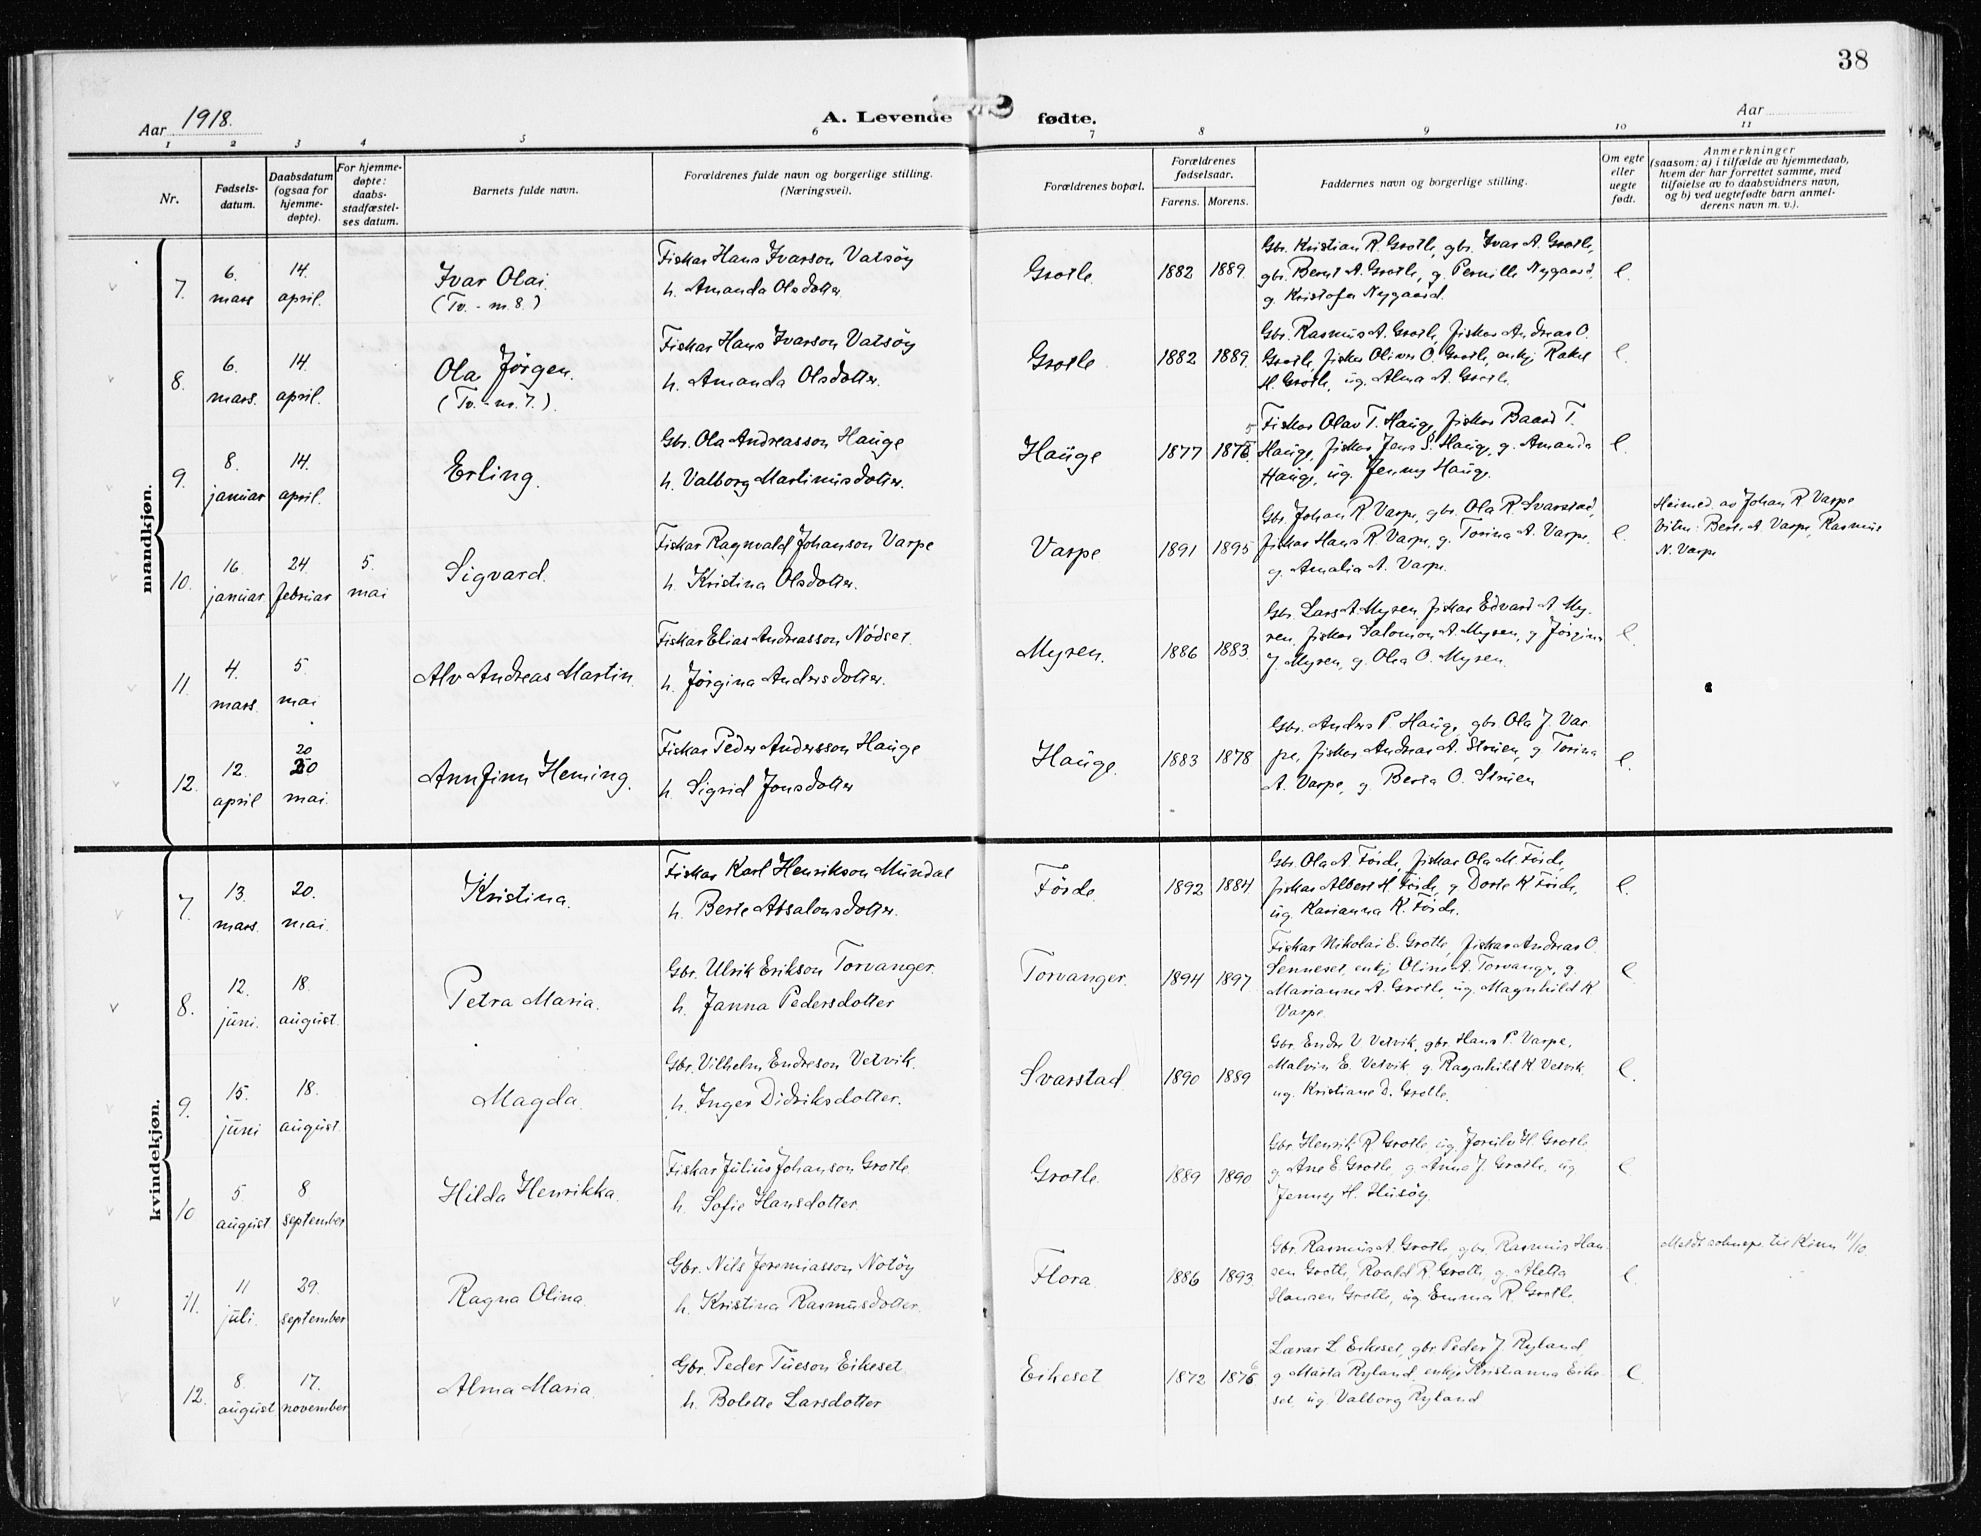 38
Aar 1918.
A. Levende fødte.
Aar
1 2 3 4 5 6 7 8 9 10 11
Nr.
Fødsels-
datum.
Daabsdatum
(ogsaa for
hjemme-
døpte).
For hjemme-
døpte:
daabs-
stadfæstel-
ses datum.
Barnets fulde navn.
Forældrenes fulde navn og borgerlige stilling.
(Næringsvei).
Forældrenes bopæl.
Forældrenes
fødselsaar.
Farens. Morens.
Faddernes navn og borgerlige stilling.
Om egte
eller
uegte
født.
Anmerkninger
(saasom: a) i tilfælde av hjemmedaab,
hvem der har forrettet samme, med
tilføielse av to daabsvidners navn,
og b) ved uegtefødte barn anmel-
derens navn m. v.).
mandkjøn.
7. 6. mars 14. april.
Ivar Olai
(Tv. - nr. 8.)
Fiskar Hans Ivarson Vatsöy
h. Amanda Olsdotter.
Grotle 1882 1889.
Gbr. Kristian R. Grotle, gbr. Ivar A. Grotle,
gbr. Bernt A. Grotle, g. Pernille Nygaard,
g. Kristofer Nygaard.
e.
8. 6. mars. 14. april.
Ola Jörgen.
(Tv. - nr. 7.).
Fiskar Hans Ivarson Vatsöy
h. Amanda Olsdotter.
Grotle 1882 1889.
Gbr. Rasmus A. Grotle, fiskar Andreas O.
Grotle, fiskar Oliver O. Grotle, enkj. Rakel
H. Grotle, ug. Alma A. Grotle.
e.
9. 8. januar 14. april.
Erling.
Gbr. Ola Andreasson Hauge
h. Valborg Martinusdotter.
Hauge 1877 1875
Fiskar Olav T. Hauge, fiskar Baard T.
Hauge, fiskar Jens S. Hauge, g. Amanda
Hauge, ug. Jenny Hauge.
e.
10. 16. januar 24. februar 5. mai
Sigvard.
Fiskar Ragnvald Johanson Varpe
h. Kristina Olsdotter.
Varpe 1891 1895
Gbr. Johan R. Varpe, gbr. Ola R. Svarstad,
fiskar Hans R. Varpe, g. Torina A. Varpe,
g. Amalia A. Varpe.
e.
Heimed. av Johan R. Varpe
Vitne: Berte A. Varpe, Rasmus
N. Varpe
11. 4. mars. 5. mai
Alv Andreas Martin.
Fiskar Elias Andreasson Nödset.
h. Jörgina Andersdotter.
Myren. 1886 1883.
Gbr. Lars A. Myren, fiskar Edvard A. My-
ren, fiskar Salomon A. Myren, g. Jörgina
J. Myren, g. Olea O. Myren.
e
12. 12. april 20 mai.
Annfinn Heming.
Fiskar Peder Andersson Hauge
h. Sigrid Jonsdotter
Hauge. 1883 1878
Gbr. Anders P. Hauge, gbr. Ola J. Var-
pe, fiskar Andreas A. Struen, g. Torina
A. Varpe, g. Berta O. Struen
e.
kvindekjøn.
7. 13. mars. 20. mai.
Kristina.
Fiskar Karl Henrikson Mundal
h. Berte Absalonsdotter.
Förde. 1892 1884
Gbr. Ola A. Förde, fiskar Ola M. Förde,
fiskar Albert H. Förde, g. Dorte K. Förde,
ug. Karianna K. Förde.
e.
8. 12. juni. 18. august.
Petra Maria.
Gbr. Ulrik Erikson Torvanger.
h. Janna Pedersdotter
Torvanger. 1894 1897.
Fiskar Nikolai E. Grotle, fiskar Andreas O.
Senneset, enkj. Oline A. Torvanger, g.
Marianne A. Grotle, ug. Magnhild K
Varpe.
e
9. 15. juni 18. august.
Magda.
Gbr. Vilhelm Endreson Vetvik.
h. Inger Didriksdotter.
Svarstad. 1890 1889
Gbr. Endre V. Vetvik, gbr. Hans P. Varpe,
Malvin E. Vetvik, g. Ragnhild K. Vetvik,
ug. Kristiane D. Grotle.
e.
10 5. august 8. september
Hilda Henrikka.
Fiskar Julius Johanson Grotle.
h. Sofie Hansdotter.
Grotle. 1889 1890
Gbr. Henrik R. Grotle, ug. Jorulv H. Grotle
g. Ane E. Grotle, g. Anna J. Grotle, ug
Jenny H. Husöy.
e
11. 11 juli. 29. september
Ragna Olina.
Gbr. Nils Jeremiasson Notöy
h. Kristina Rasmusdotter.
Flora. 1886 1893.
Gbr. Rasmus A. Grotle, gbr. Rasmus Han-
sen Grotle, Roald R. Grotle, g. Aletta
Hansen Grotle, ug Emma R Grotle.
e.
Meldt soknepr. til Kinn 11/10.
12. 8. august 17. november
Alma Maria.
Gbr. Peder Tueson Eikeset.
h. Bolette Larsdotter
Eikeset 1872 1876
Lærar L. Eikeset, gbr. Peder J. Ryland,
g. Marta Ryland, enkje Kristianna Eike-
set, ug. Valborg Ryland
e.